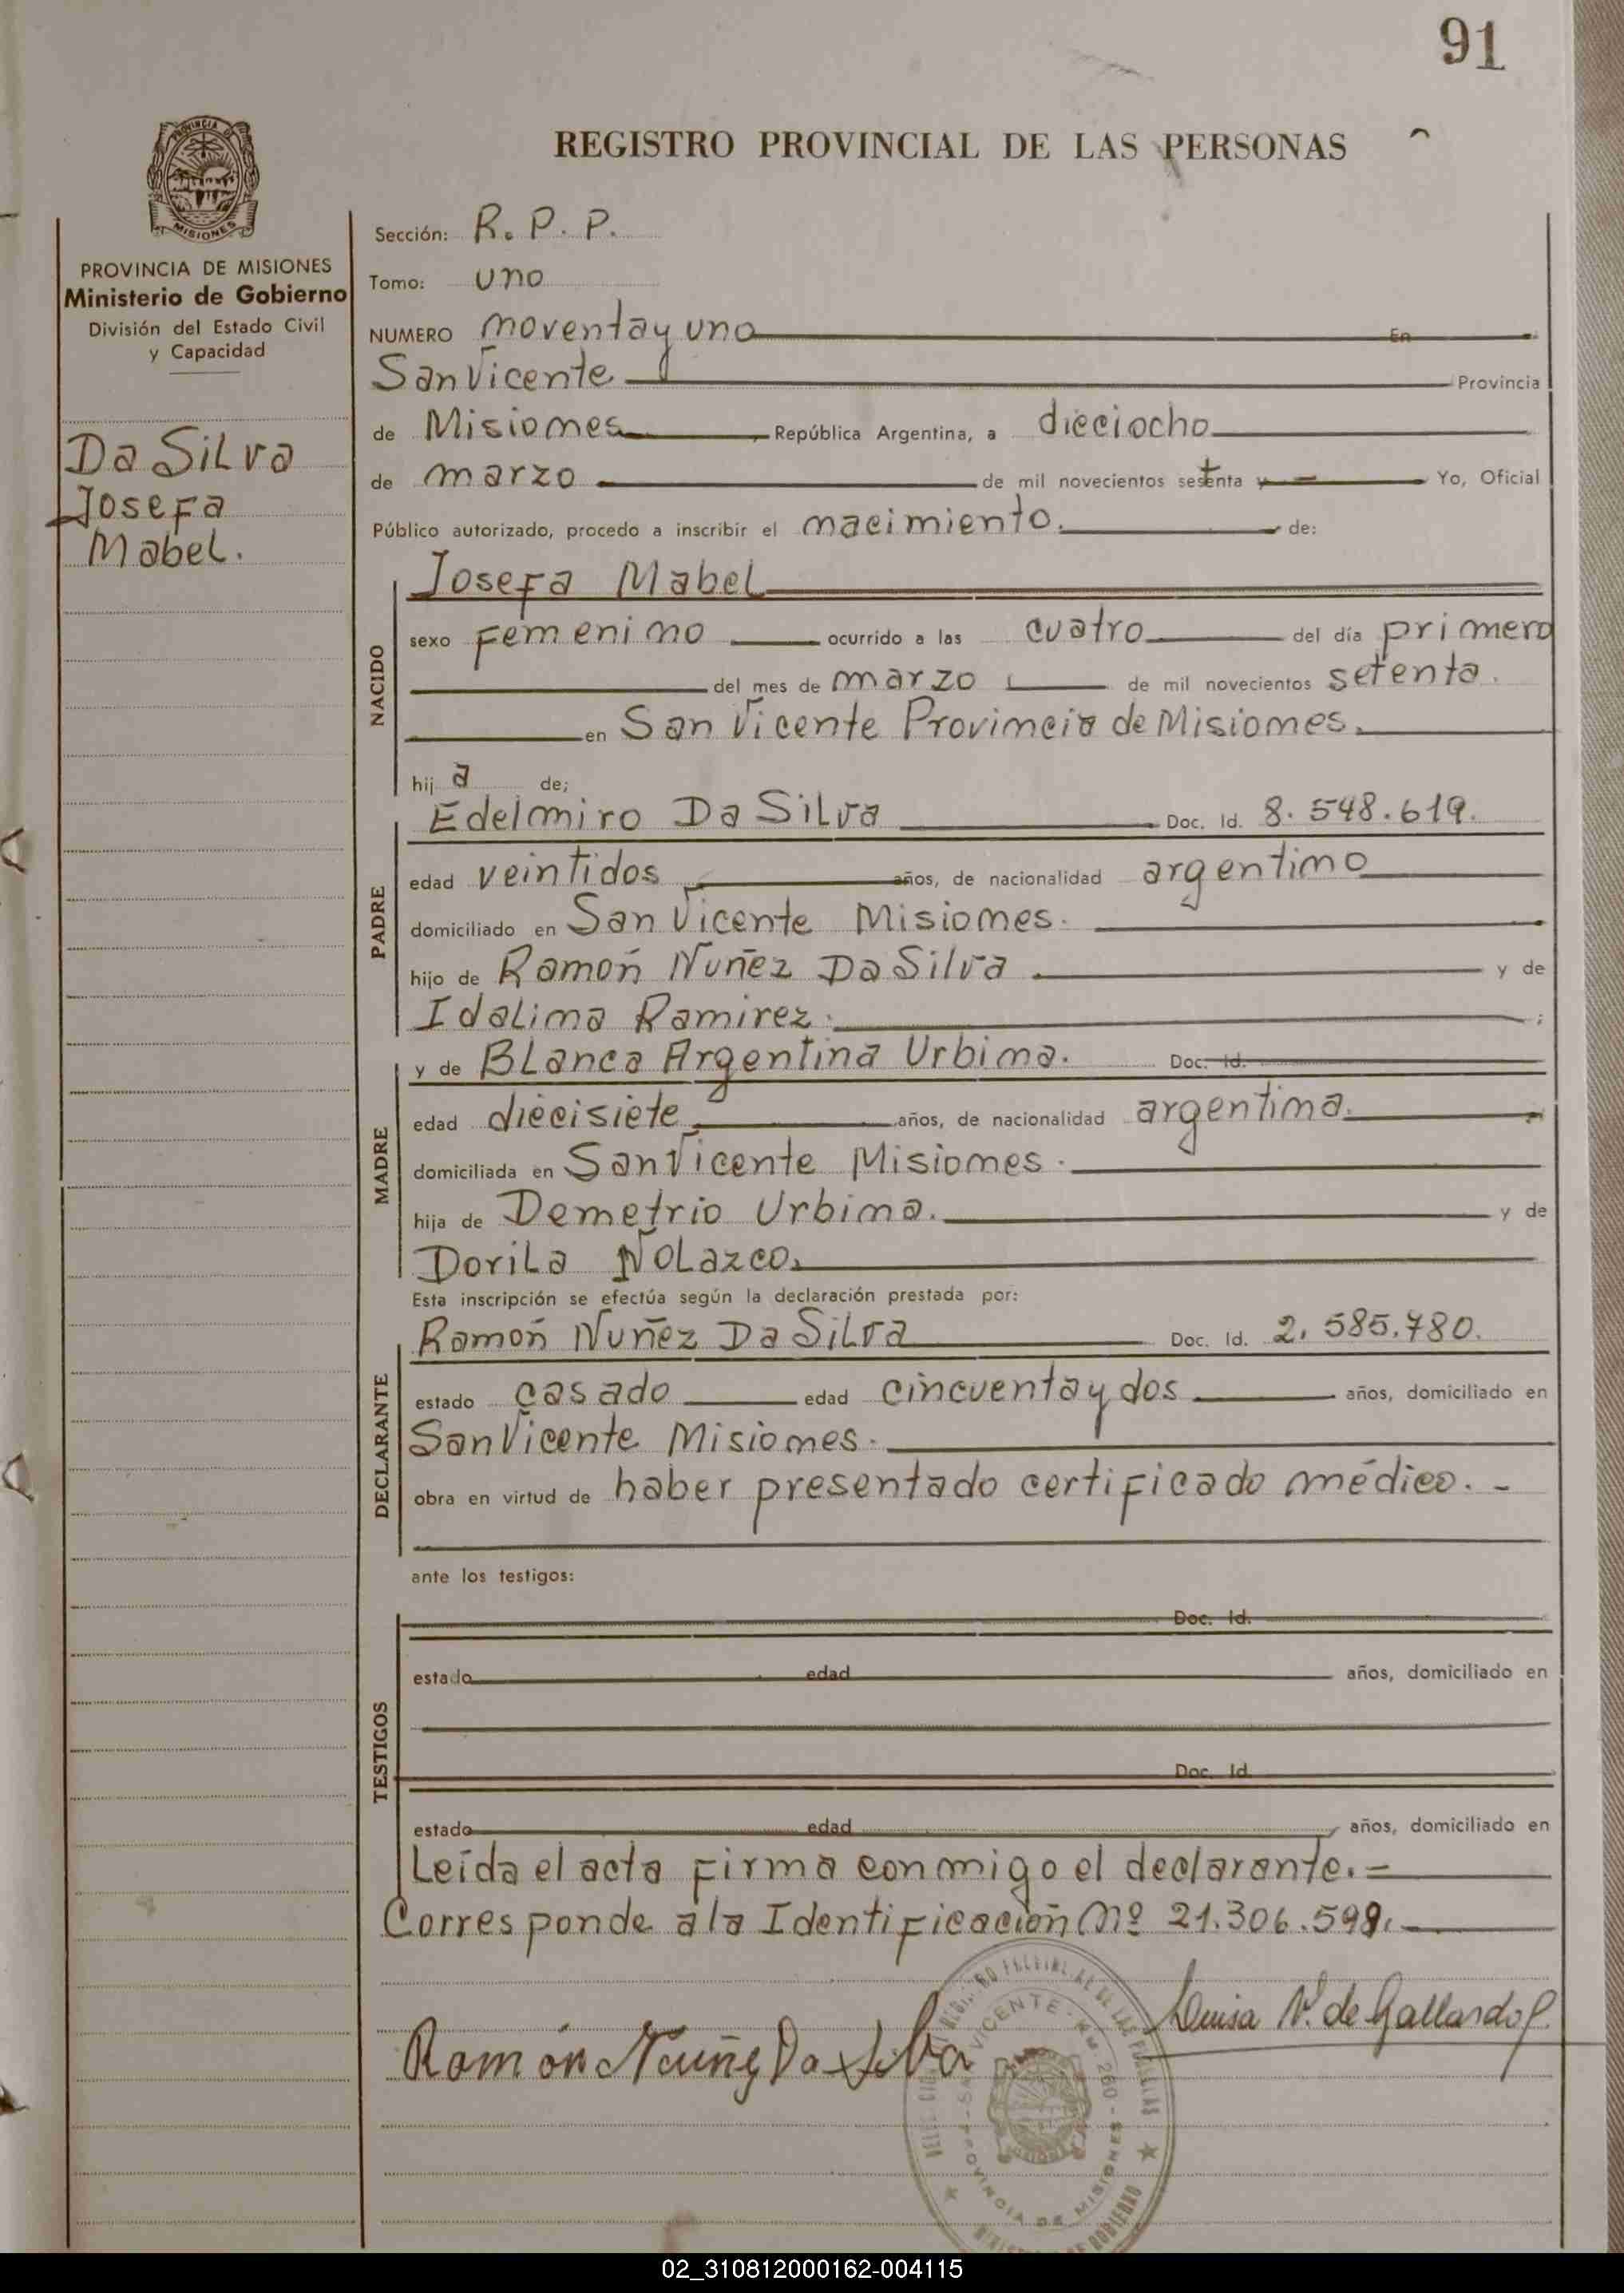 91
REGISTRO PROVINCIAL DE LAS PERSONAS
PROVINCIA DE
MISIONES
PROVINCIA DE MISIONES
Ministerio de Gobierno
División del Estado Civil
y Capacidad
Da Silva
Josefa
Mabel.
Sección: R. P. P.
Tomo: uno
NUMERO noventa y uno En
San Vicente Provincia
de Misiones República Argentina, a dieciocho
de marzo de mil novecientos setenta y Yo, Oficial
Público autorizado, procedo a inscribir el nacimiento. de:
NACIDO
Josefa Mabel
sexo Femenino ocurrido a las cuatro del día primero
del mes de marzo de mil novecientos setenta.
en San Vicente Provincia de Misiones.
hij a de;
PADRE
Edelmiro Da Silva Doc. Id. 8.548.619.
edad veintidos años, de nacionalidad argentino
domiciliado en San Vicente Misiones.
hijo de Ramoń Nuñez Da Silva y de
Idalina Ramirez. ;
MADRE
y de Blanca Argentina Urbina. Doc. Id.
edad diecisiete años, de nacionalidad argentina.
domiciliada en San Vicente Misiones.
hija de Demetrio Urbina. y de
Dorila Nolazco.
Esta inscripción se efectúa según la declaración prestada por:
DECLARANTE
Ramoń Nuñez Da Silva Doc. Id. 2.585.780.
estado casado edad cincuenta y dos años, domiciliado en
San Vicente Misiones.
obra en virtud de haber presentado certificado médico. -
ante los testigos:
TESTIGOS
Doc. Id.
estado edad años, domiciliado en
Doc. Id.
estado edad años, domiciliado en
Leída el acta firma conmigo el declarante. =
Corresponde a la Identificación Nº 21.306.599.
Ramón Nuñez Da Silva
Luisa V. de Gallardo
SAN VICENTE
260
PROVINCIA DE MISIONES
02_310812000162-004115